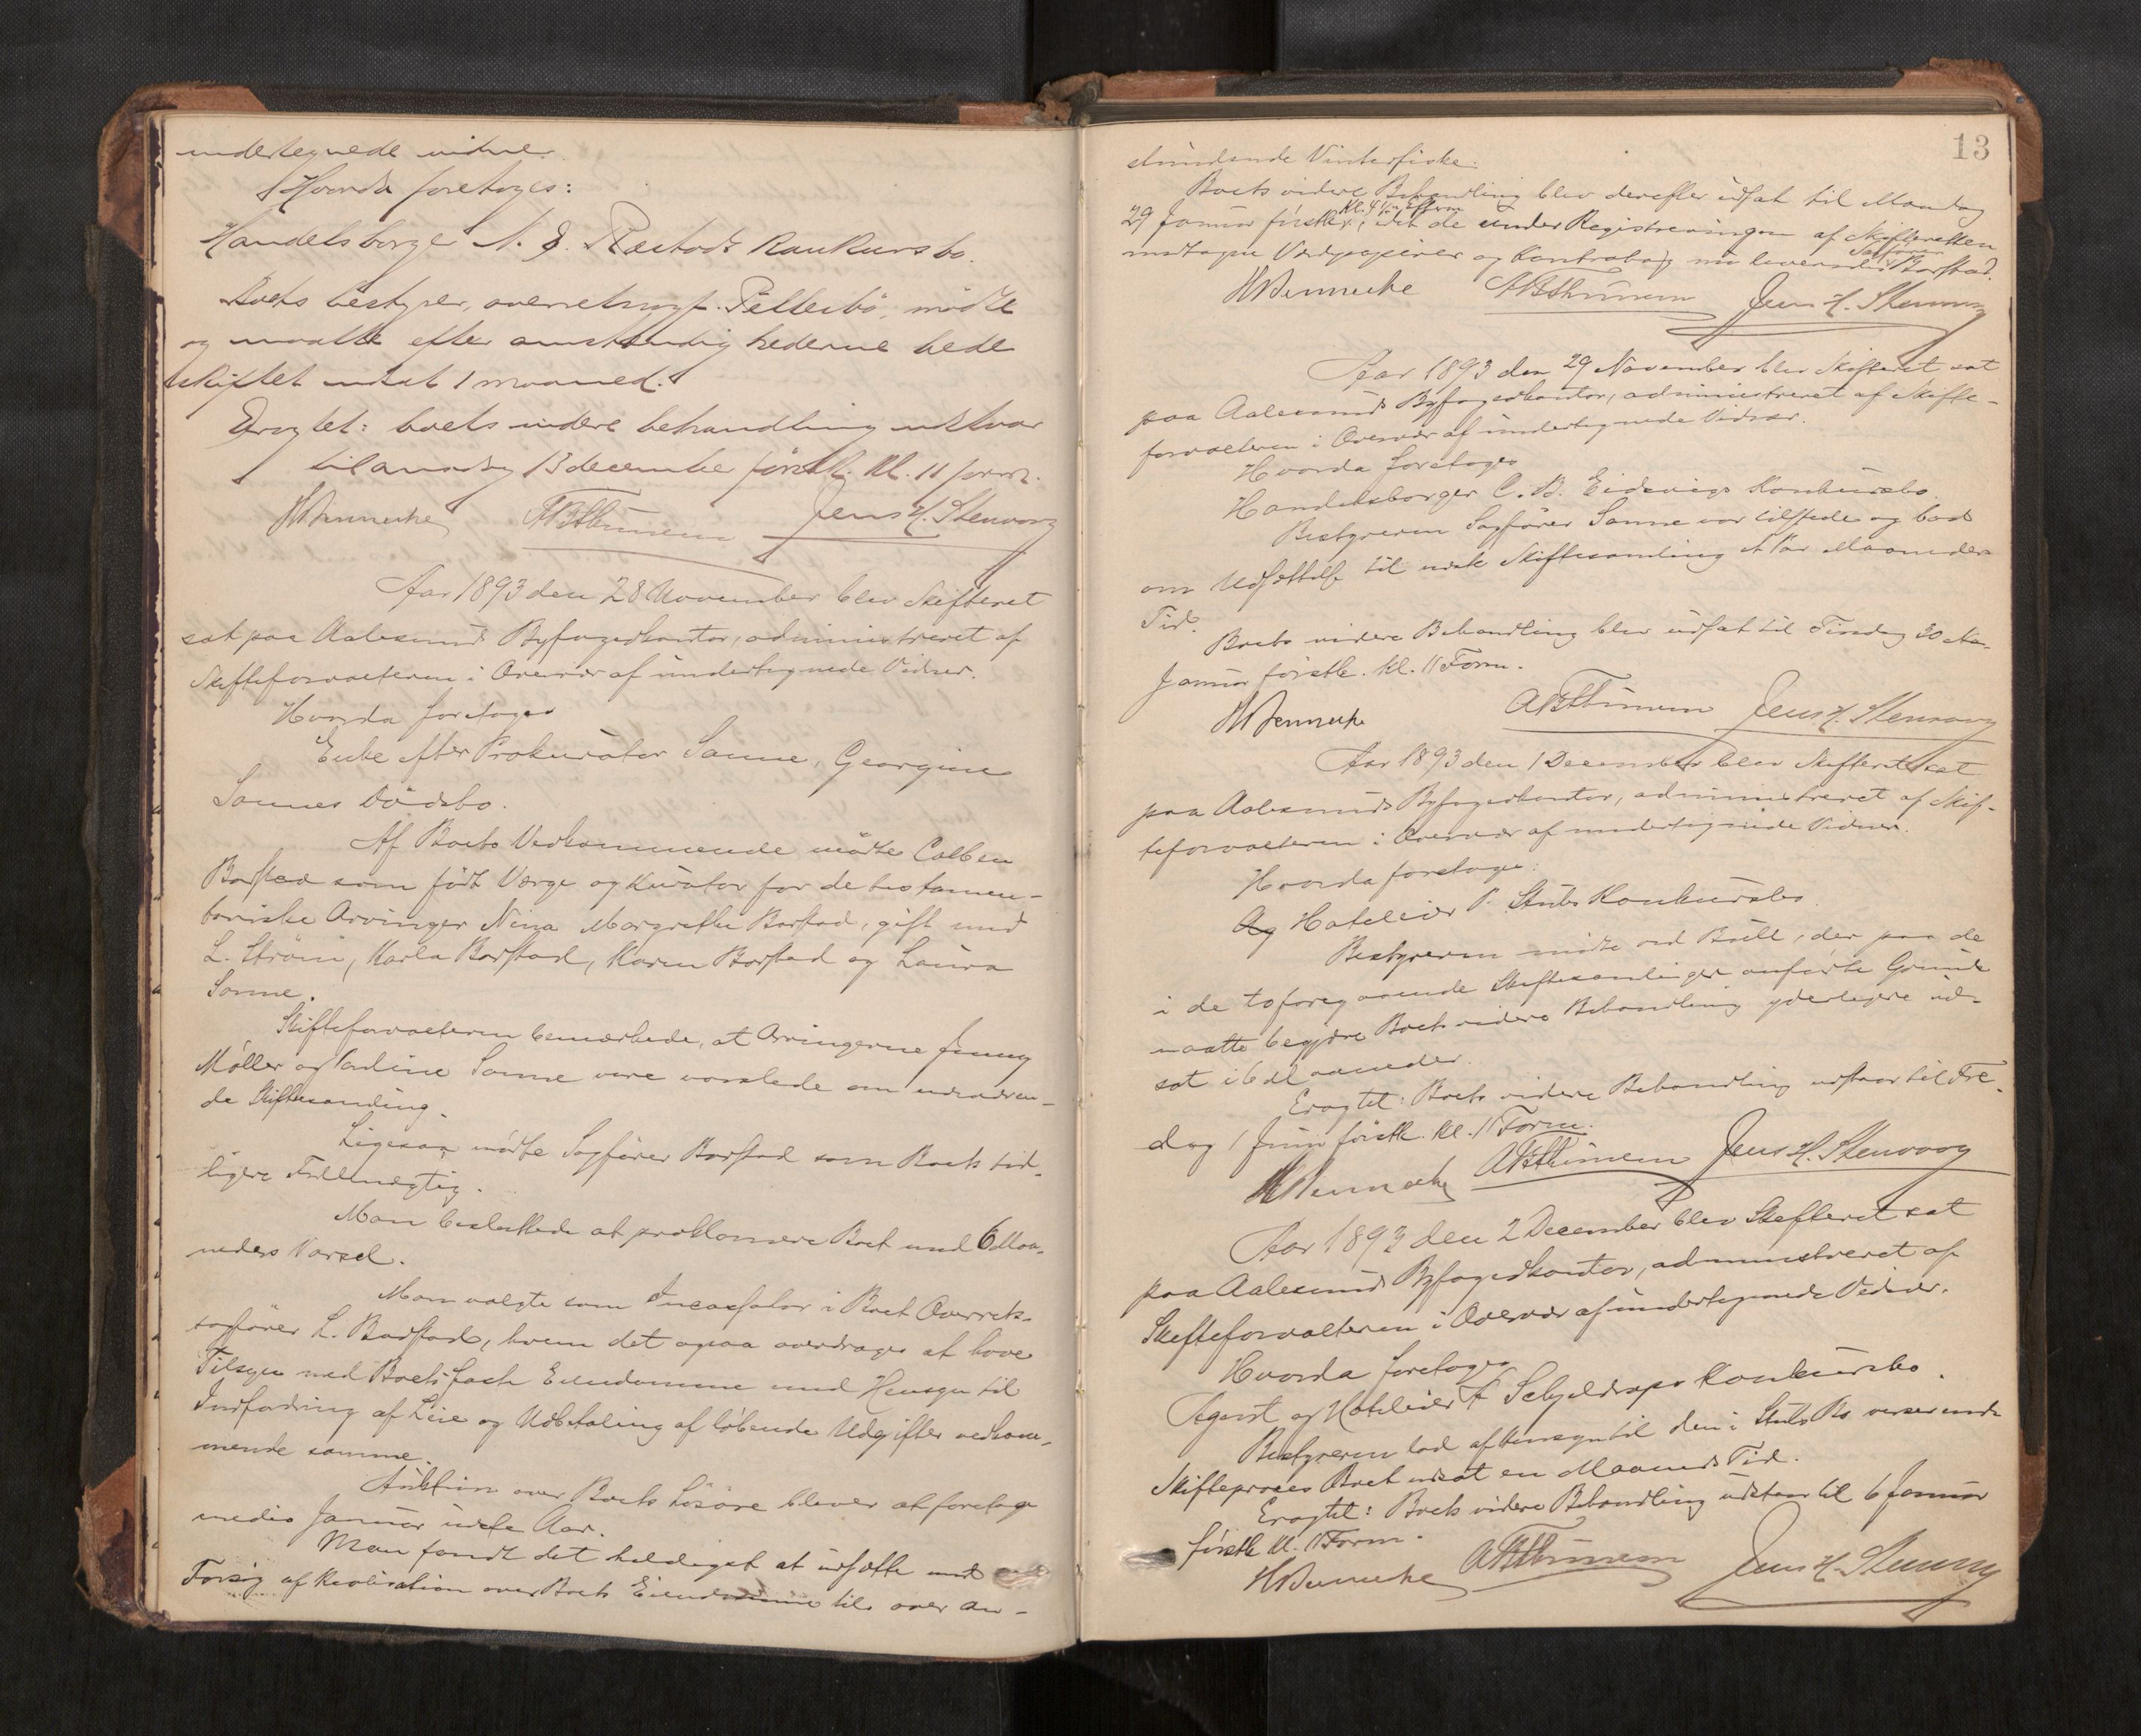 undertegnede vidner.
Hvorda foretoges:
Handelsborger N. J. Ræstads konkursbo.
Boets bestyrer, overretssagf. Petterbö, mödte
og maatte efter omstændighederne bede
skiftet udsat 1 maaned.
Eragtet: boets videre behandling udstaar
til onsdag 13 december förstk. kl. 11 form.
HWennecke ABThunem Jens H. Stenvaag
Aar 1893 den 28 November blev Skifteret
sat paa Aalesunds Byfogedkontor, administreret af
Skifteforvalteren i Overvær af undertegnede Vidner.
Hvorda foretoges
Enke efter Prokurator Sanne, Georgine
Sannes Dödsbo.
Af Boets Vedkommende mödte Colben
Barstad som födt Værge og Kurator for de testamen-
tariske Arvinger Nina Margrethe Barstad, gift med
L. Ström, Karla Barstad, Karen Barstad og Laura
Sanne.
Skifteforvalteren bemærkede, at Arvingerne Jenny
Möller og Pauline Sanne vare varslede om nærværen-
de Skiftesamling.
Ligesaa mödte Sagförer Barstad som Boets tid-
ligere Fuldmægtig.
Man besluttede at proklamere Boet med 6 Maa-
neders Varsel.
Man valgte som Incassator i Boet Overrets-
sagförer L. Barstad, hvem det ogsaa overdrages at have
Tilsyn med Boets faste Eiendomme med Hensyn til
Indfordring af Leie og Udbetaling af löbende Udgifter vedkom-
mende samme.
Auktion over Boets Lösöre bliver at foretage
medio Januar næste Aar.
Man fandt det heldigst at udsætte med
Forsög af Realisation over Boets Eiendomme til over an-
13
stundende Vinterfiske.
Boets videre Behandling blev derefter udsat til Mandag
29 Januar förstk. Kl. 4 1/2 Efterm, idet de under Registreringen af Skifteretten
modtagne Værdipapirer og Kontrabog nu leveredes Sagförer Barstad.
HWennecke ABThunem Jens H. Stenvaag
Aar 1893 den 29 November blev Skifteret sat
paa Aalesunds Byfogedkontor, administreret af Skifte-
forvalteren i Overvær af undertegnede Vidner.
Hvorda foretoges
Handelsborger C. B. Eidsvigs Konkursbo.
Bestyreren Sagförer Sanne var tilstede og bad
om Udsættelse til næste Skiftesamling et Par Maaneders
Tid.
Boets videre Behandling blev udsat til Tirsdag 30 de
Januar förstk. kl. 11 Form.
HWennecke ABThunem Jens H. Stenvaag
Aar 1893 den 1 December blev Skifteret sat
paa Aalesunds Byfogedkontor, administreret af Skif-
teforvalteren i Overvær af undertegnede Vidner.
Hvorda foretoges:
Ag Hotelier P. Stubs Konkursbo.
Bestyreren mödte ved Bull, der paa de
i de to foregaaende Skiftesamlinger anförte Grunde
maatte begjære Boets videre Behandling yderligere ud-
sat i 6 Maaneder.
Eragtet: Boets videre Behandling udstaar til Fre-
dag 1 Juni förstk. kl. 11 Form.
HWennecke ABThunem Jens H. Stenvaag
Aar 1893 den 2 December blev Skifteret sat
paa Aalesunds Byfogedkontor, administreret af
Skifteforvalteren i Overvær af undertegnede Vidner.
Hvorda foretoges
Agent og Hotelier A Schjeldrops Konkursbo.
Bestyreren bad af Hensyn til den i Stubs Bo verserende
Skifteproces Boet udsat en Maaneds Tid.
Eragtet: Boets videre Behandling udstaar til 6 Januar
förstk kl. 11 Form.
HWennecke ABThunem Jens H. Stenvaag